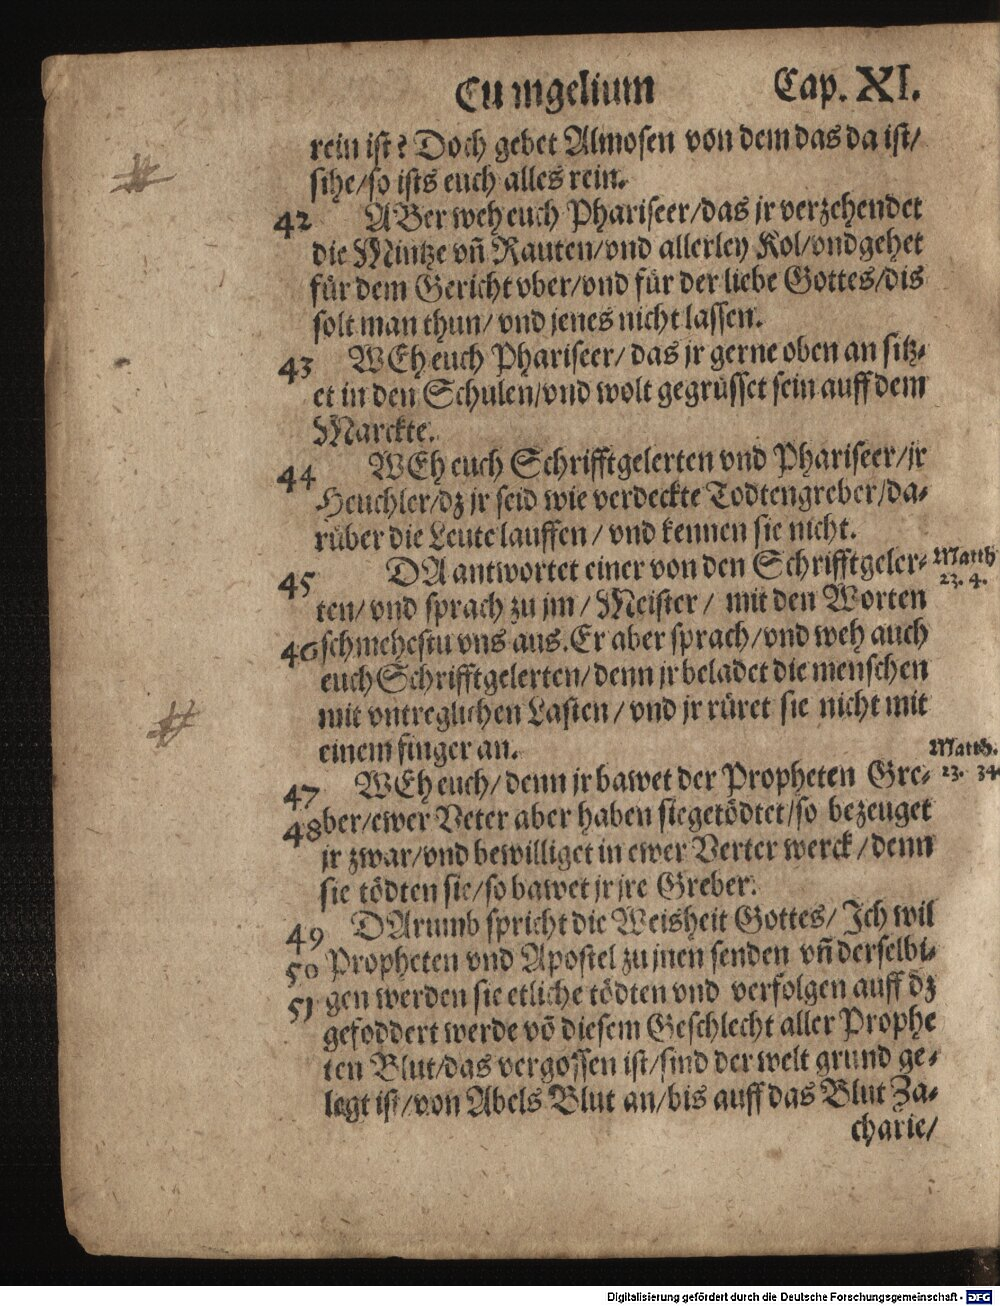 Eu mgelium Cap. XI.
rein ist? Doch gebet Almosen von dem das da ist/
sihe/so ists euch alles rein.
42 ABer weh euch Phariseer/das jr verzehendet
die Mintze vñ Rauten/vnd allerley Kol/vnd gehet
für dem Gericht vber/vnd für der liebe Gottes/dis
solt man thun/ vnd jenes nicht lassen.
43 WEh euch Phariseer/ das jr gerne oben an sitz-
et in den Schulen/vnd wolt gegrüsset sein auff dem
Marckte.
44 WEh euch Schrifftgelerten vnd Phariseer/jr
Heuchler/dz jr seid wie verdeckte Todtengreber/da-
rüber die Leute lauffen / vnd kennen sie nicht.
45 DA antwortet einer von den Schrifftgeler- Matth
23. 4.
ten/ vnd sprach zu jm / Meister / mit den Worten
46 schmehestu vns aus. Er aber sprach/vnd weh auch
euch Schrifftgelerten/denn jr beladet die menschen
mit vntreglichen Lasten / vnd jr rüret sie nicht mit
einem finger an.
47 WEh euch/ denn jr bawet der Propheten Gre- Matth.
23. 34
48 ber/ewer Veter aber haben sie getödtet/so bezeuget
jr zwar/vnd bewilliget in ewer Verter werck / denn
sie tödten sie/so bawet jr jre Greber.
49 DArumb spricht die Weisheit Gottes/ Ich wil
50 Propheten vnd Apostel zu jnen senden vñ derselbi-
51 gen werden sie etliche tödten vnd verfolgen auff dz
gefoddert werde võ diesem Geschlecht aller Prophe
ten Blut/das vergossen ist/sind der welt grund ge-
legt ist/von Abels Blut an/bis auff das Blut Za-
charie/
Digitalisierung gefördert durch die Deutsche Forschungsgemeinschaft - DFG